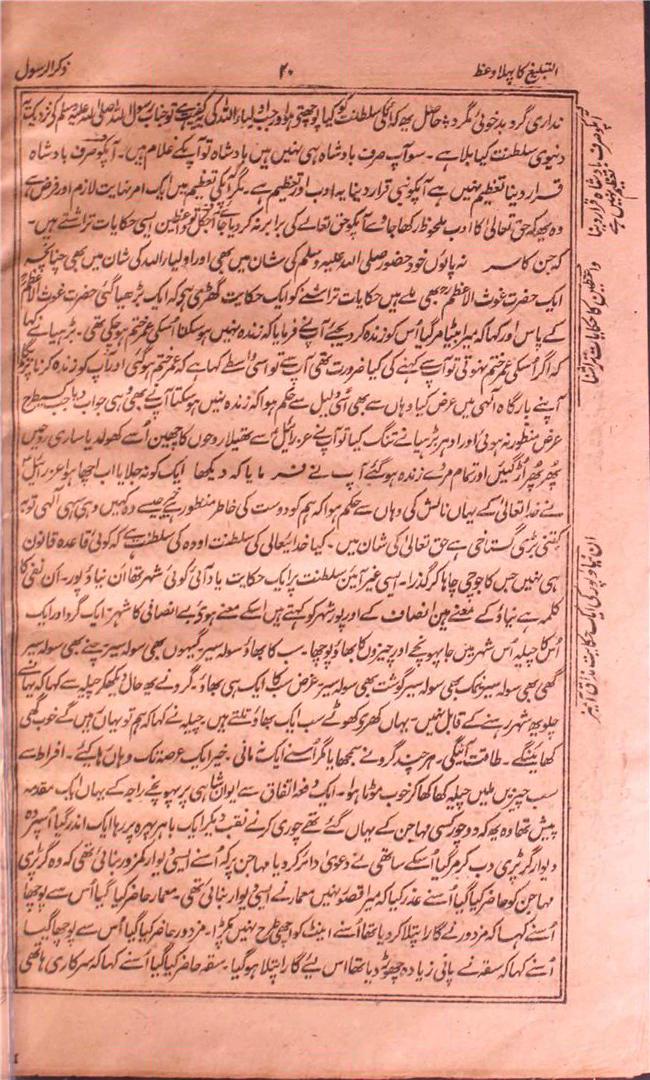 التبلیغ کا پہلا وعظ
۲۰
ذکر الرسول
نداری گرد بدخوئی مگرد ÷ حاصل یہ کہ انکی سلطنت کو کیا پوچھتی ہو اور جب اولیاء اللہ کی یہ کیفیت ہے تو جناب رسول اللہ صلی اللہ علیہ وسلم کی نزدیک تو
دنیوی سلطنت کیا بلا ہے۔ سو آپ صرف بادشاہ ہی نہیں ہیں بادشاہ تو آپکے غلام ہیں۔ آپکو صرف بادشاہ
قرار دینا تعظیم نہیں ہے آپکو نبی قرار دینا یہ ادب اور تعظیم ہے۔ مگر آپکی تعظیم میں ایک امر نہایت لازم اور فرض ہے
وہ یہ کہ حق تعالیٰ کا ادب ملحوظ رکھا جاوے آپکو حق تعالےٰ کی برابر نہ کر دیا جائے آجکل تو واعظین ایسی حکایات تراشتے ہیں۔
کہ جن کا سر نہ پاؤں خود حضور صلی اللہ علیہ وسلم کی شان میں بھی اور اولیاء اللہ کی شان میں بھی چنانچہ
ایک حضرت غوث الاعظمؒ بھی ملے ہیں حکایات تراشنے کو ایک حکایت گھڑی ہی کہ ایک بڑھیا گئی حضرت غوث الاعظمؒ
کے پاس اور کہا کہ میرا بیٹا مر گیا اُس کو زندہ کر دیجئے آپنے فرمایا کہ زندہ نہیں ہو سکتا اُسکی عمر ختم ہو چکی تھی۔ بڑھیا نے کہا
کہ اگر اُسکی عمر ختم نہوتی تو آپ سے کہنے کی کیا ضرورت تھی آپ سے تو اسی واسطے کہا ہے کہ عمر ختم ہوگئی اور آپ کو زندہ کرنا پڑیگا
آپنے بارگاہ الٰہی میں عرض کیا وہاں سے بھی اُسی دلیل سے حکم ہوا کہ زندہ نہیں ہو سکتا آپنے بھی وہی جواب دیا جب کسی طرح
عرض منظور نہ ہوئی اور ادھر بڑھیا نے تنگ کیا تو آپنے عزرائیلؑ سے تھیلا روحوں کا چھین اُسے کھولدیا ساری روحیں
پھر پھر اُڑ گئیں اور تمام مردے زندہ ہوگئے آپ نے فرمایا کہ دیکھا ایک کو نہ جلایا اب اچھا ہوا عزرائیلؑ
نے خدا تعالیٰ کے یہاں نالش کی وہاں سے حکم ہوا کہ ہم کو دوست کی خاطر منظور ہے خیر جیسے وہ کہیں وہی سہی الٰہی توبہ
کتنی بڑی گستاخی ہے حق تعالیٰ کی شان میں۔ کیا خدا تعالی کی سلطنت اودہ کی سلطنت ہے کہ کوئی قاعدہ قانون
ہی نہیں جس کا جو جی چاہا کر گذرا۔ اسی غیر آئین سلطنت پر ایک حکایت یاد آئی کوئی شہر تھا اَن نیاؤ پور۔ اَن نفی کا
کلمہ ہے نیاؤ کے معنے ہیں انصاف کے اور پور شہر کو کہتے ہیں اسکے معنے ہوئے بے انصافی کا شہر۔ ایک گرو اور ایک
اُس کا چیلہ اُس شہر میں جا پہونچے اور چیزوں کا بھاؤ پوچھا۔ سب کا بھاؤ سولہ سیر۔ گیہوں بھی سولہ سیر چنے بھی سولہ سیر
گھی بھی سولہ سیر نمک بھی سولہ سیر گوشت بھی سولہ سیر غرض سب کا ایک ہی بھاؤ۔ گرو نے یہ حال دیکھکر چیلہ سے کہا کہ یہانسے
چلو یہ شہر رہنے کے قابل نہیں۔ یہاں کھری کھوٹے سب ایک بھاؤ تلتے ہیں چیلہ نے کہا کہ ہم تو یہاں ہیں گے خوب گھی
کھائیں گے۔ طاقت آئیگی۔ ہرچند گرو نے سمجھایا مگر اُسنے ایک نہ مانی۔ خیر ایک عرصہ تک وہاں رہا کیئے۔ افراط سے
سب چیزیں ملیں چیلہ کھا کھا کر خوب موٹا ہوا۔ ایک دفعہ اتفاق سے ایوان شاہی پر پہونچے راجہ کے یہاں ایک مقدمہ
پیش تھا وہ یہ کہ دو چور کسی مہاجن کے یہاں گئے تھے چوری کرنے نقب دیکر ایک باہر پہرہ پر رہا ایک اندر گیا اُسپر وہ
دیوار گر پڑی دب کر مر گیا اُسکے ساتھی نے دعویٰ دائر کر دیا مہاجن پر کہ اُسنے ایسی دیوار کمزور بنائی تھی کہ وہ گر پڑی
مہاجن کو حاضر کیا گیا اُسنے عذر کیا کہ میرا قصور نہیں معمار نے ایسی دیوار بنائی تھی۔ معمار حاضر کیا گیا اُس سے پوچھا
اُسنے کہا کہ مزدور نے گارا پتلا کر دیا تھا اُسنے اینٹ کو اچھی طرح نہیں پکڑا۔ مزدور حاضر کیا گیا اُس سے پوچھا گیا
اُسنے کہا کہ سقہ نے پانی زیادہ چھوڑ دیا تھا اس لیے گارا پتلا ہوگیا۔ سقہ حاضر کیا گیا اُسنے کہا کہ سرکاری ہاتھی
آپکو صرف بادشاہ قرار دینا
تعظیم نہیں ہے
واعظین کا حکایات تراشنا
ان نیاؤ پور کی ایک حکایت مذاق آمیز